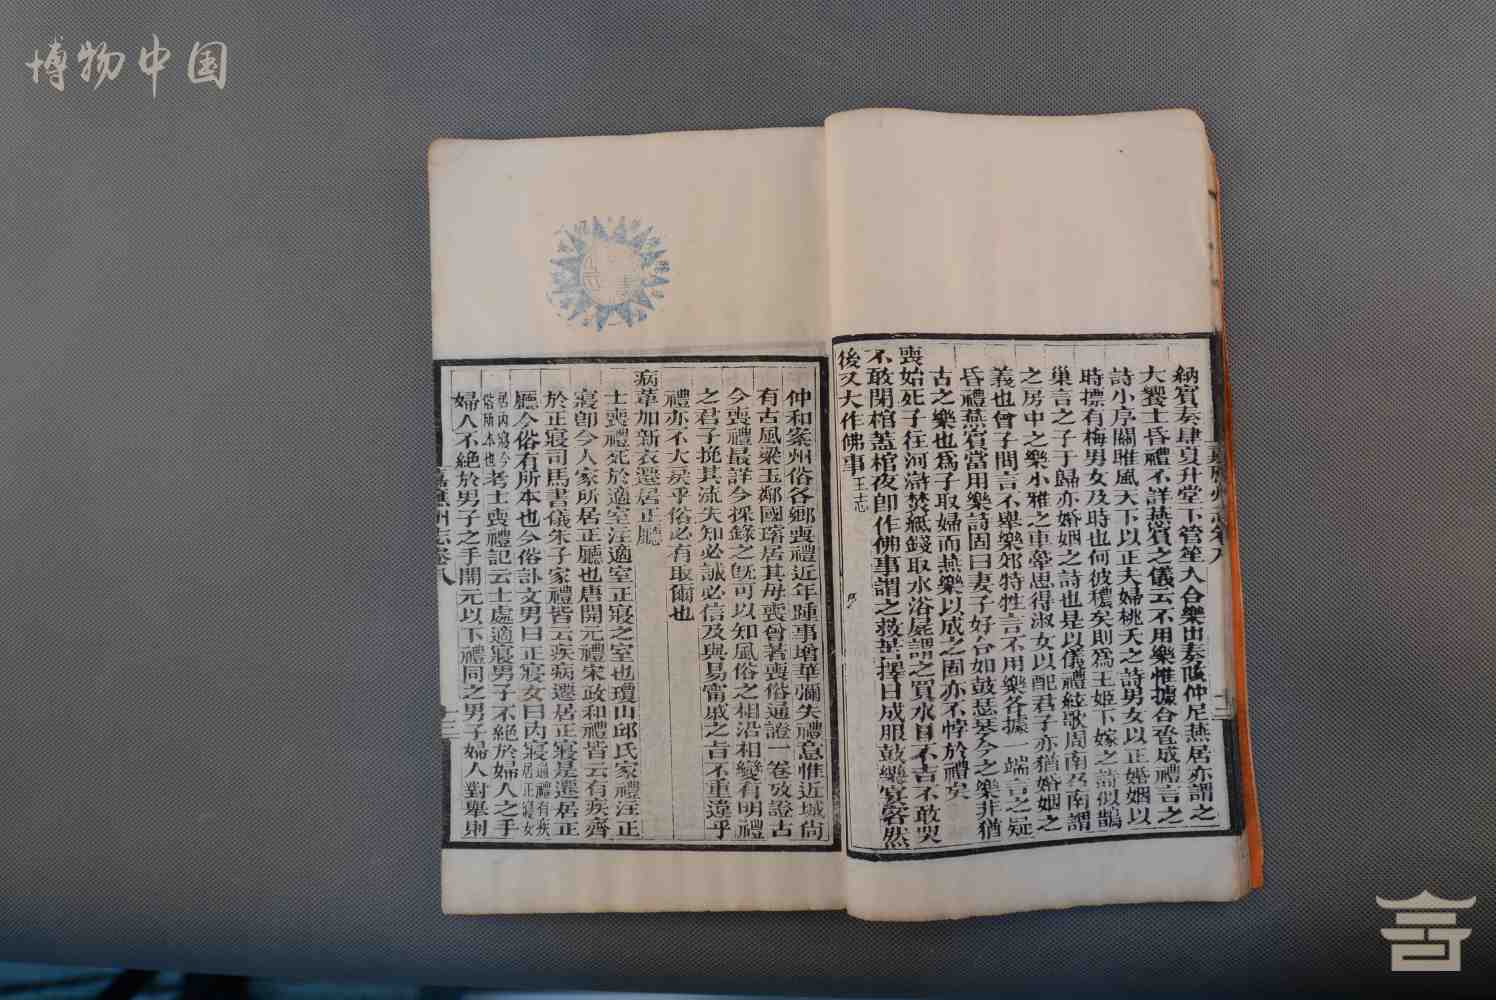 博物中国
納賓奏肆夏升堂下管笙入合樂出奏陔仲尼燕居亦謂之
大饗士昏禮不詳燕賓之儀云不用樂惟據合卺成禮言之
詩小序關雎風天下以正夫婦桃夭之詩男女以正婚姻以
時摽有梅男女及時也何彼穠矣則為王姬下嫁之詩似鵲
巢言之子于歸亦婚姻之詩也是以儀禮絃歌周南召南謂
之房中之樂小雅之車舝思得淑女以配君子亦猶婚姻之
義也曾子問言不舉樂郊特牲言不用樂各據一端言之疑
昏禮燕賓當用樂詩固曰妻子好合如鼓瑟琴今之樂非猶
古之樂也為子取婦而燕樂以成之固亦不悖於禮矣
喪始死子往河滸焚紙錢取水浴屍謂之買水目不吉不敢哭
不敢閉棺蓋棺夜即作佛事謂之救苦擇日成服鼓樂宴客然
後又大作佛事王志
仲和案州俗各鄉喪禮近年踵事增華彌失禮意惟近城尚
有古風梁玉鄰國瑢居其母喪曾著喪俗通證一卷攷證古
今喪禮最詳今採錄之旣可以知風俗之相沿相變有明禮
之君子挽其流失知必誠必信及與易甯戚之旨不重違乎
禮亦不大戾乎俗必有取爾也
病革加新衣遷居正廳
士喪禮死於適室注適室正寢之室也瓊山邱氏家禮注正
寢卽今人家所居正廳也唐開元禮宋政和禮皆云有疾齊
於正寢司馬書儀朱子家禮皆云疾病遷居正寢是遷居正
廳今俗有所本也今俗訃文男曰正寢女曰內寢居正寢女
居內寢今俗所本也考士喪禮記云士處適寢男子不絕於婦人之手
婦人不絕於男子之手開元以下禮同之男子婦人對舉則
嘉應州志卷八